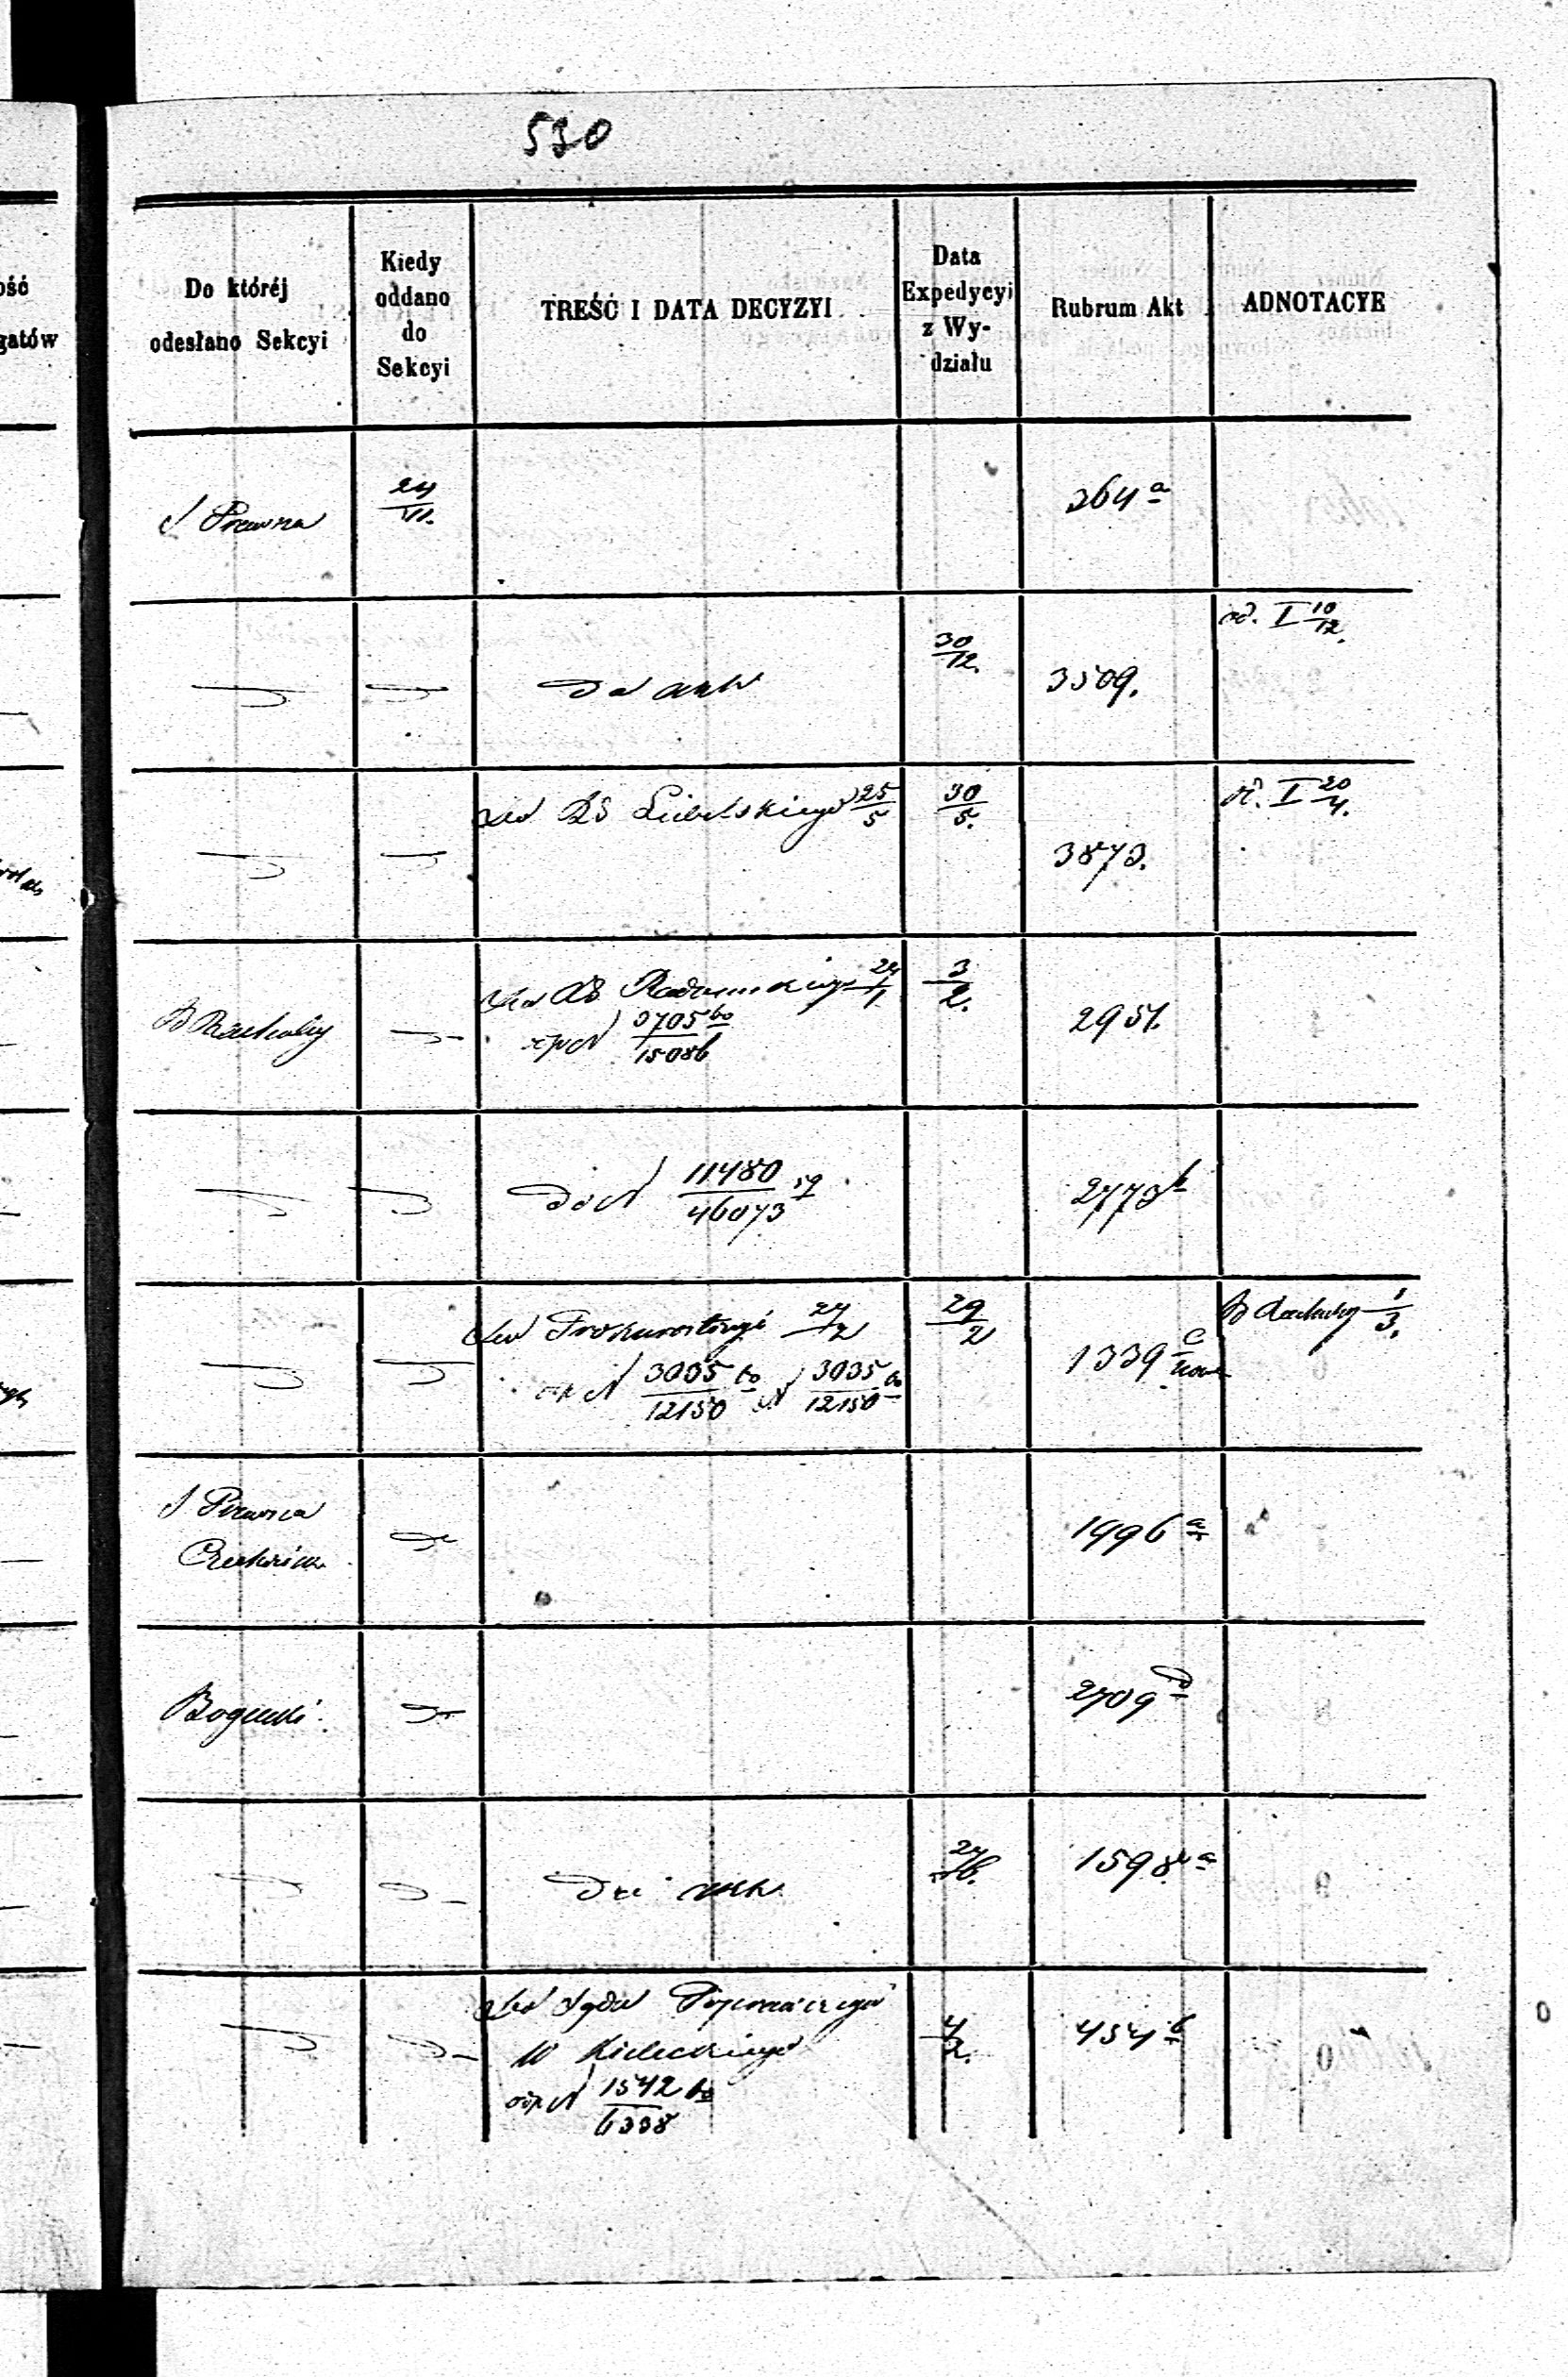 530
Do któréj
odesłano Sekcyi
Kiedy
oddano
do
Sekcyi
TREŚĆ I DATA DECYZYI
Data
Expedycyi
z Wy-
działu
Rubrum Akt
ADNOTACYE
ość
gatów
S Prawna
24/11.
264 a
do akt
30/12.
3509.
od. I 10/12.
Do RG Lubelskiego 25/5
30/5.
3873.
I 20/4.
B Rachuby
Do RG Radomskiego 24/1
3705/15086
3/2.
2951.
do N 11480/46073
2773 b
Do Prokuratoryi 27/2
N 3035/12150 N 3035/12150
29/2
1339 c
B Rachuby 1/3.
S Prawna
1996 a
Bogucki
2709 d
do akt
1598 a
Do Sądu Poprawczego
W Kieleckiego
N 1542/6338
4/2.
454 b